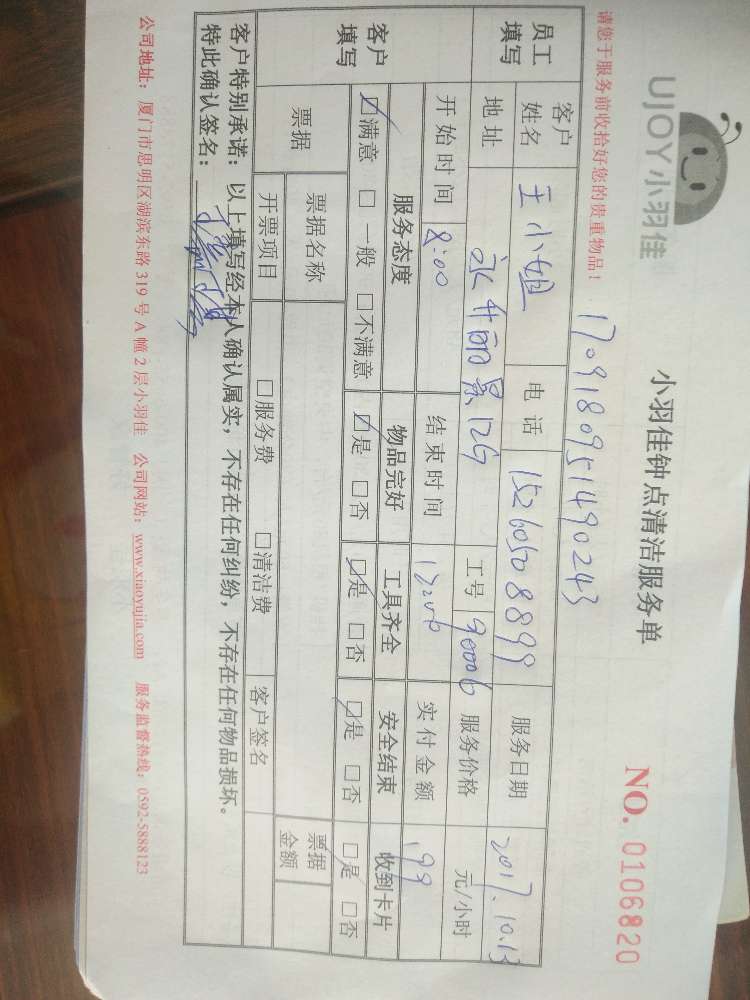 UJOY小羽佳
小羽佳钟点清洁服务单
NO. 0106820
请您于服务前收拾好您的贵重物品！
1709180951490243
员工填写 客户姓名 王小姐 电话 15260508899 服务日期 2017.10.13
地址 永升丽景12G 工号 90006 服务价格 元/小时
开始时间 8:00 结束时间 实付金额 199
客户填写 服务态度 物品完好 工具齐全 安全结束 收到卡片
☑满意 □一般 □不满意 ☑是 □否 ☑是 □否 ☑是 □否 ☑是 □否
票据 票据名称 票据金额
开票项目 □服务费 □清洁费 客户签名
客户特别承诺：以上填写经本人确认属实，不存在任何纠纷，不存在任何物品损坏。
特此确认签名：
公司地址：厦门市思明区湖滨东路319号A幢2层小羽佳 公司网站：www.xiaoyujia.com 服务监督热线：0592-5888123